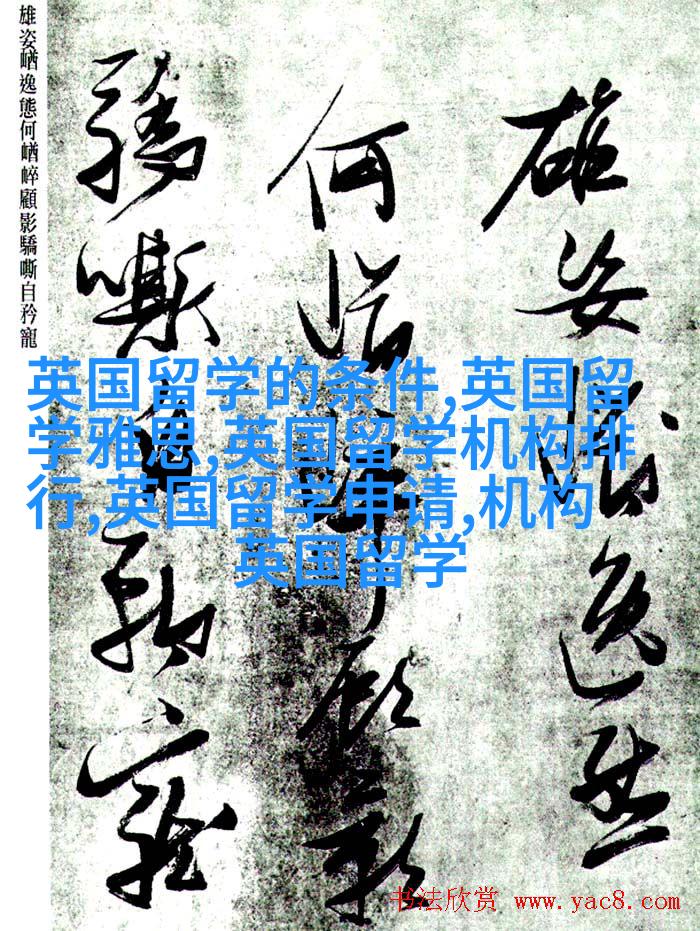 雄姿逸態
何崷崪顧影
驕嘶自矜寵
雄姿崷逸態何崷崪顧影驕嘶自矜寵
英国留学的条件,英国留
学雅思,英国留学机构排
行,英国留学申请,机构
英国留学
书法欣赏 www.yac8.com